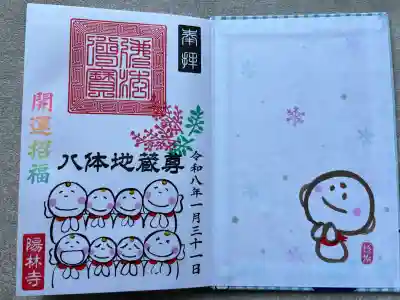 奉拝
八体地蔵尊
令和八年一月三十一日
開運招福
陽林寺